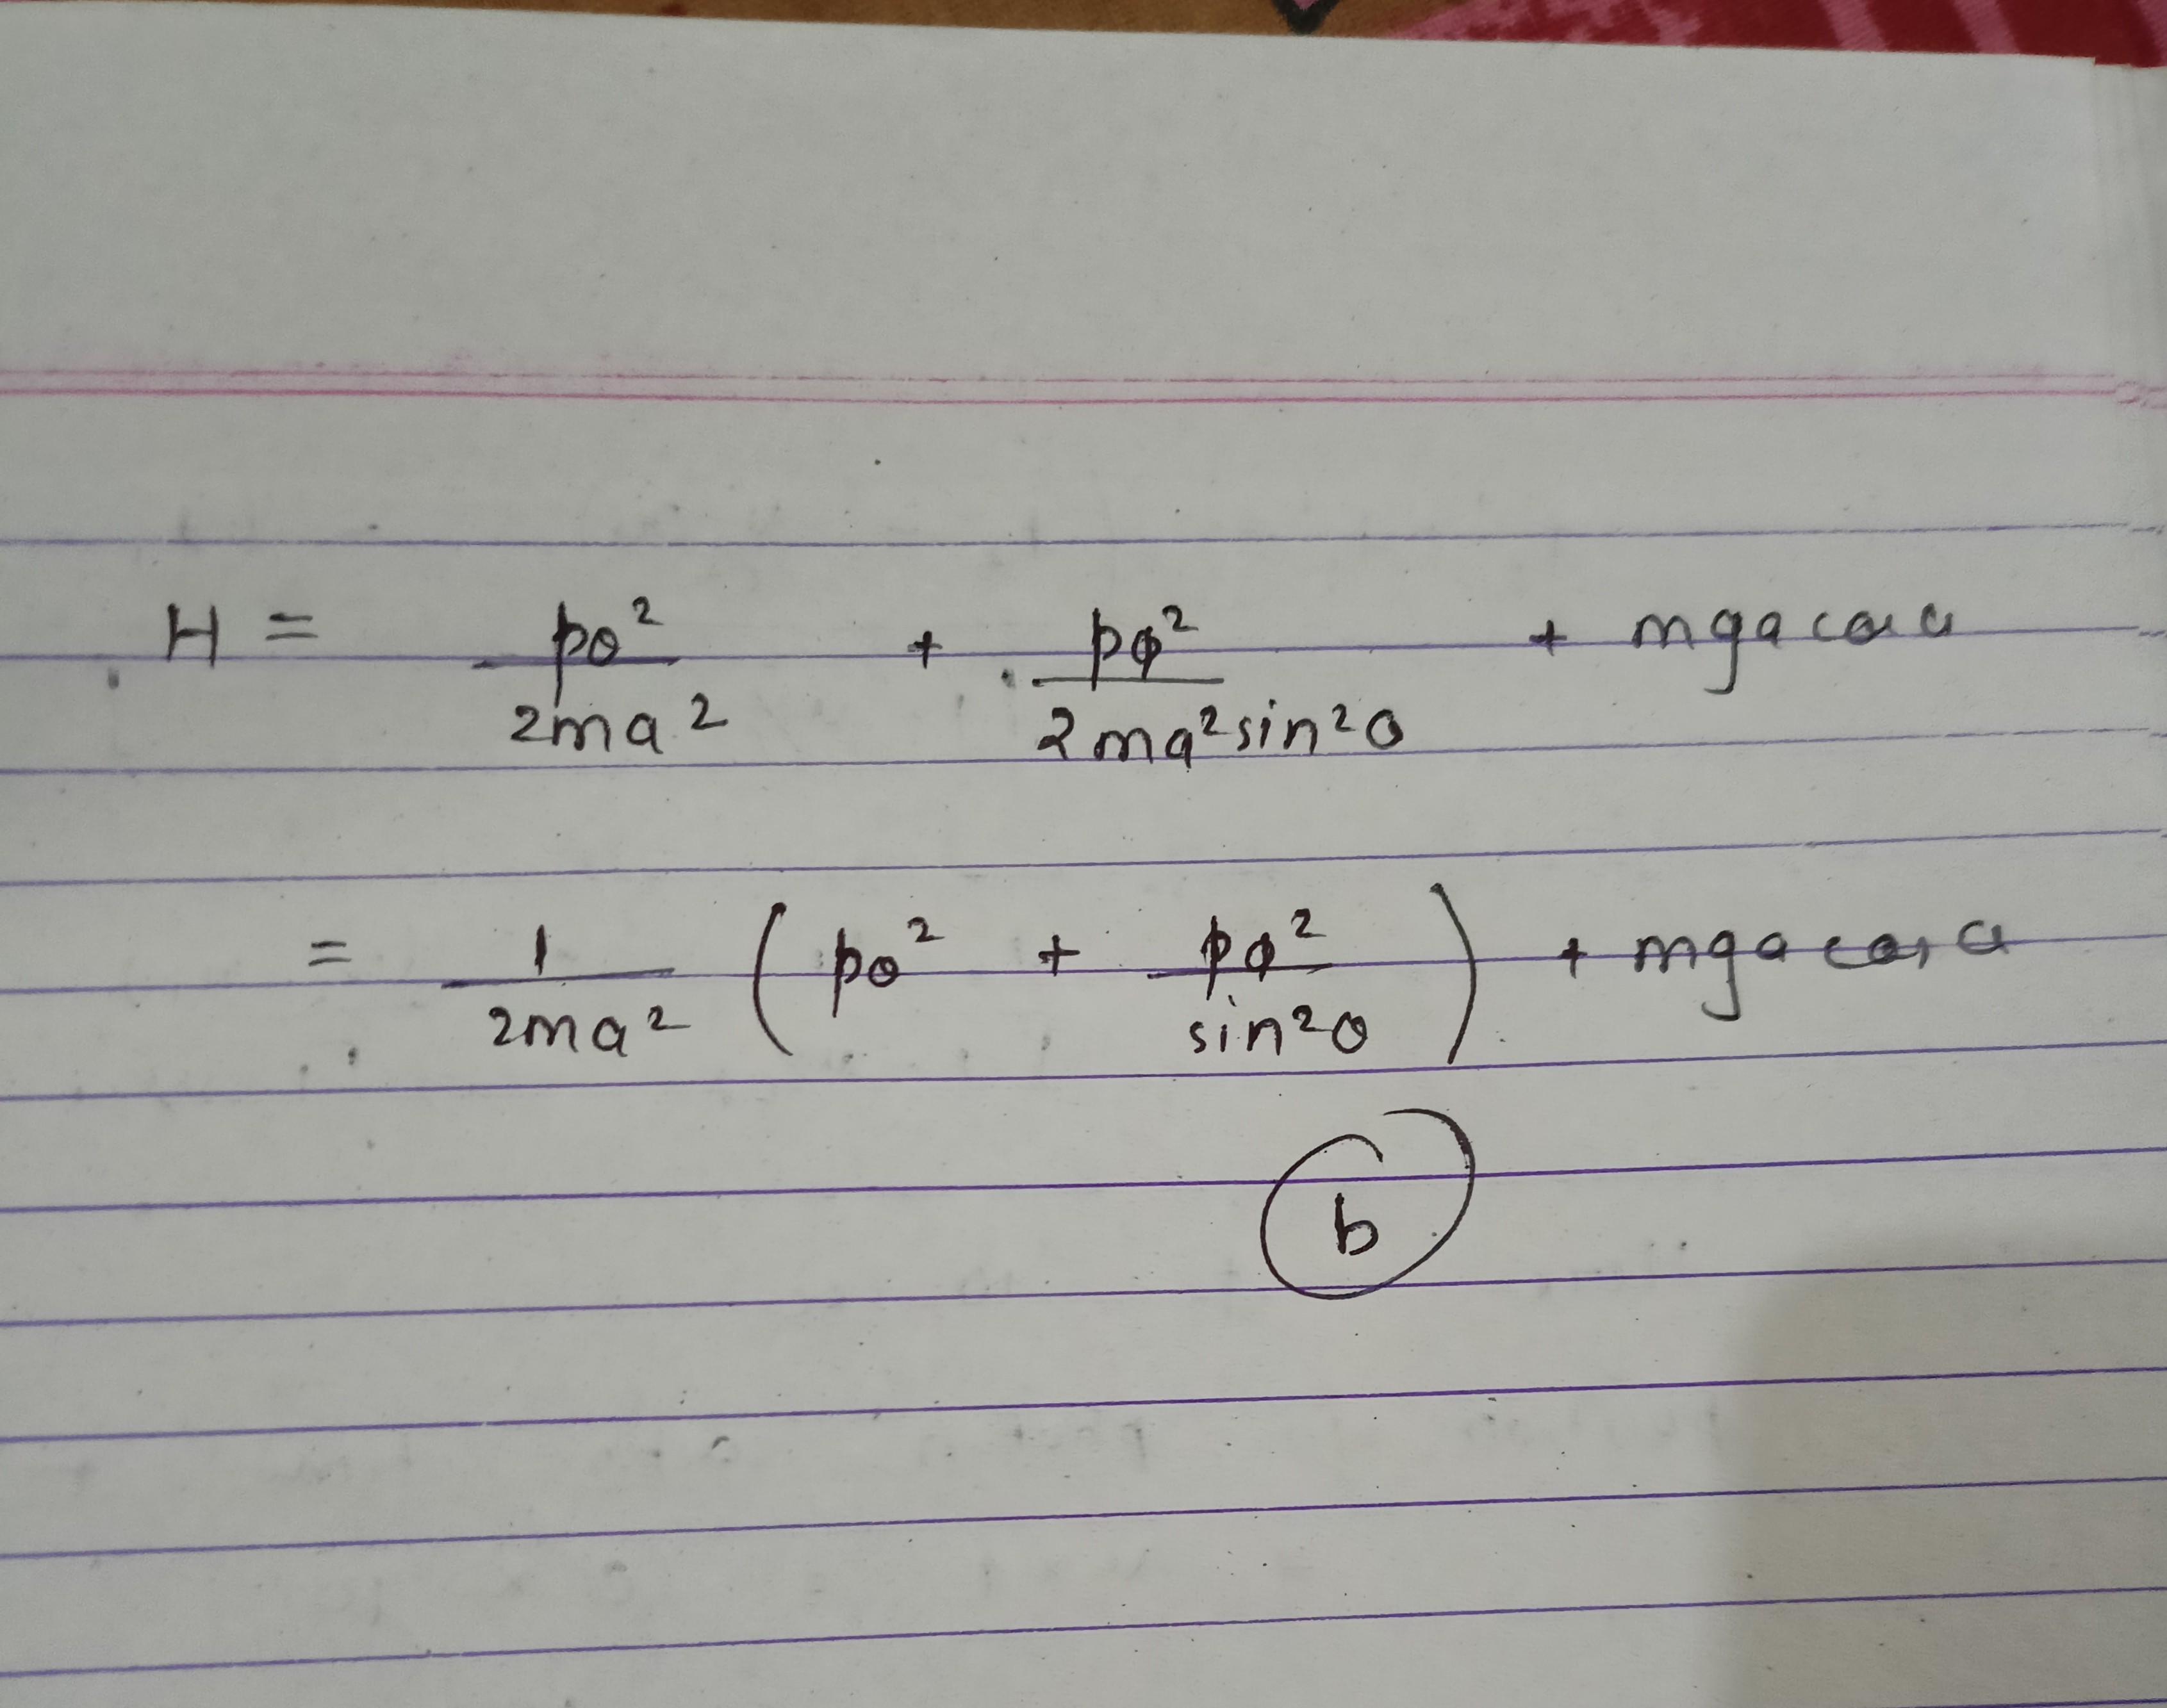 H = pθ²/2ma² + pφ²/2ma²sin²θ + mga cos α
= 1/2ma² (pθ² + pφ²/sin²θ) + mga cos α
b